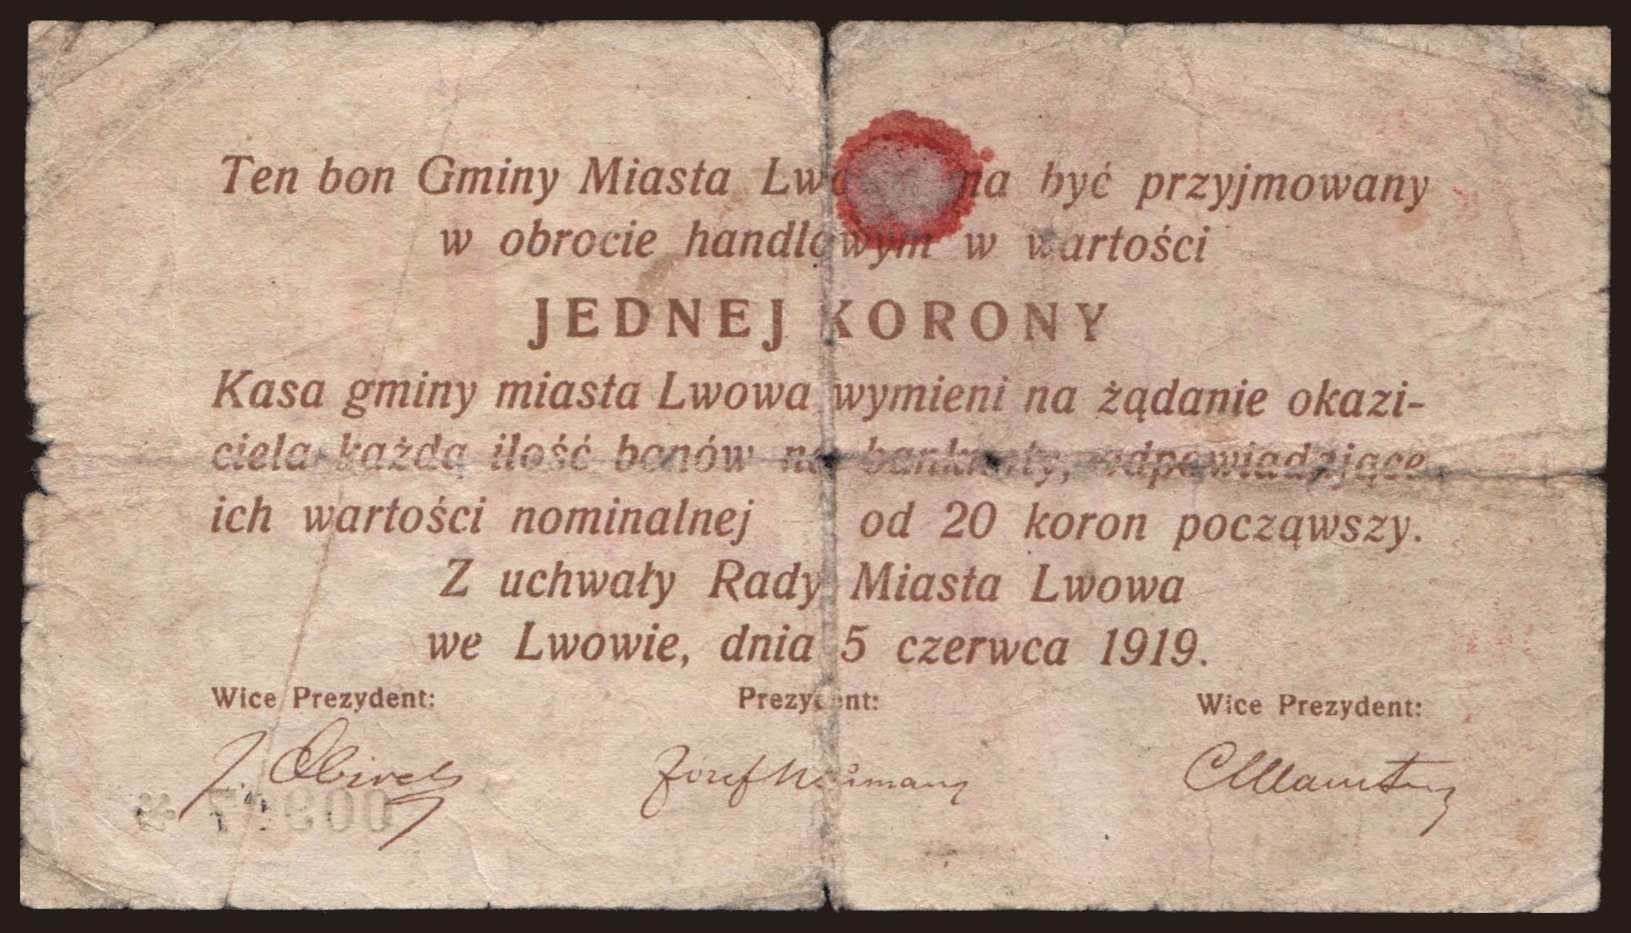 Ten bon Gminy Miasta Lwowa ma być przyjmowany
w obrocie handlowym w wartości
JEDNEJ KORONY
Kasa gminy miasta Lwowa wymieni na żądanie okazi-
ciela każdą ilość bonów na banknoty, odpowiadające
ich wartości nominalnej od 20 koron począwszy.
Z uchwały Rady Miasta Lwowa
we Lwowie, dnia 5 czerwca 1919.
Wice Prezydent: Prezydent: Wice Prezydent:
Józef Neumann